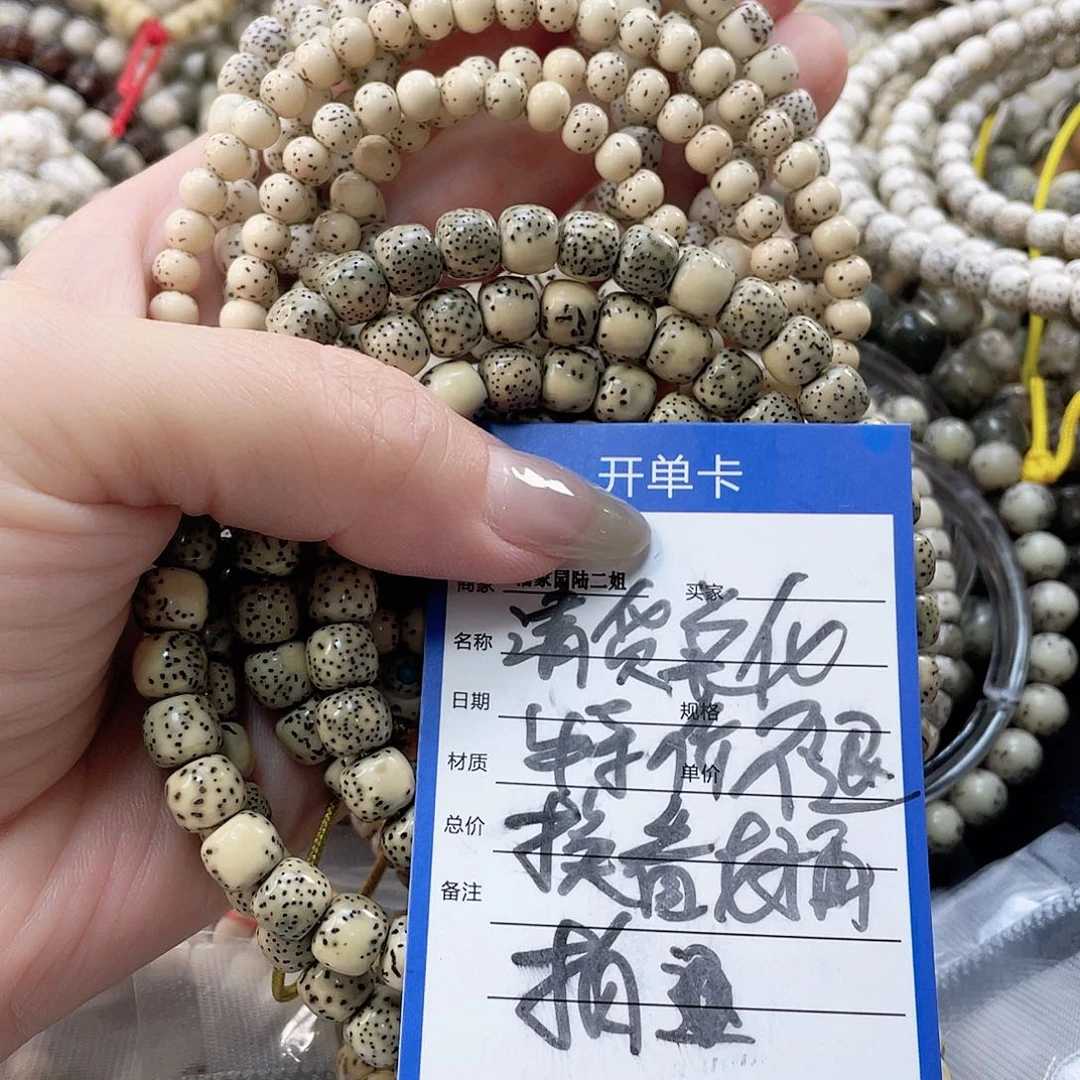 开单卡
商家 潘家园陆二姐 买家
名称 清货
日期 规格
特价不退
材质 单价
总价 换看好再
备注 拍